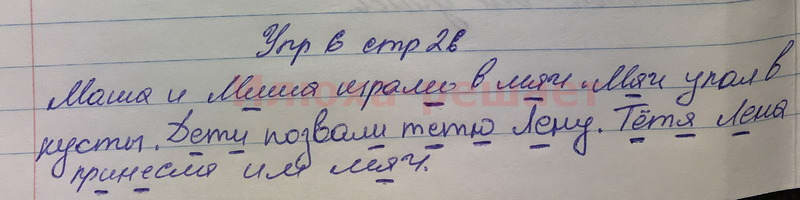 Упр 6 стр 26
Маша и Миша играли в мяч. Мяч упал в
кусты. Дети позвали тётю Лену. Тётя Лена
принесла им мяч.